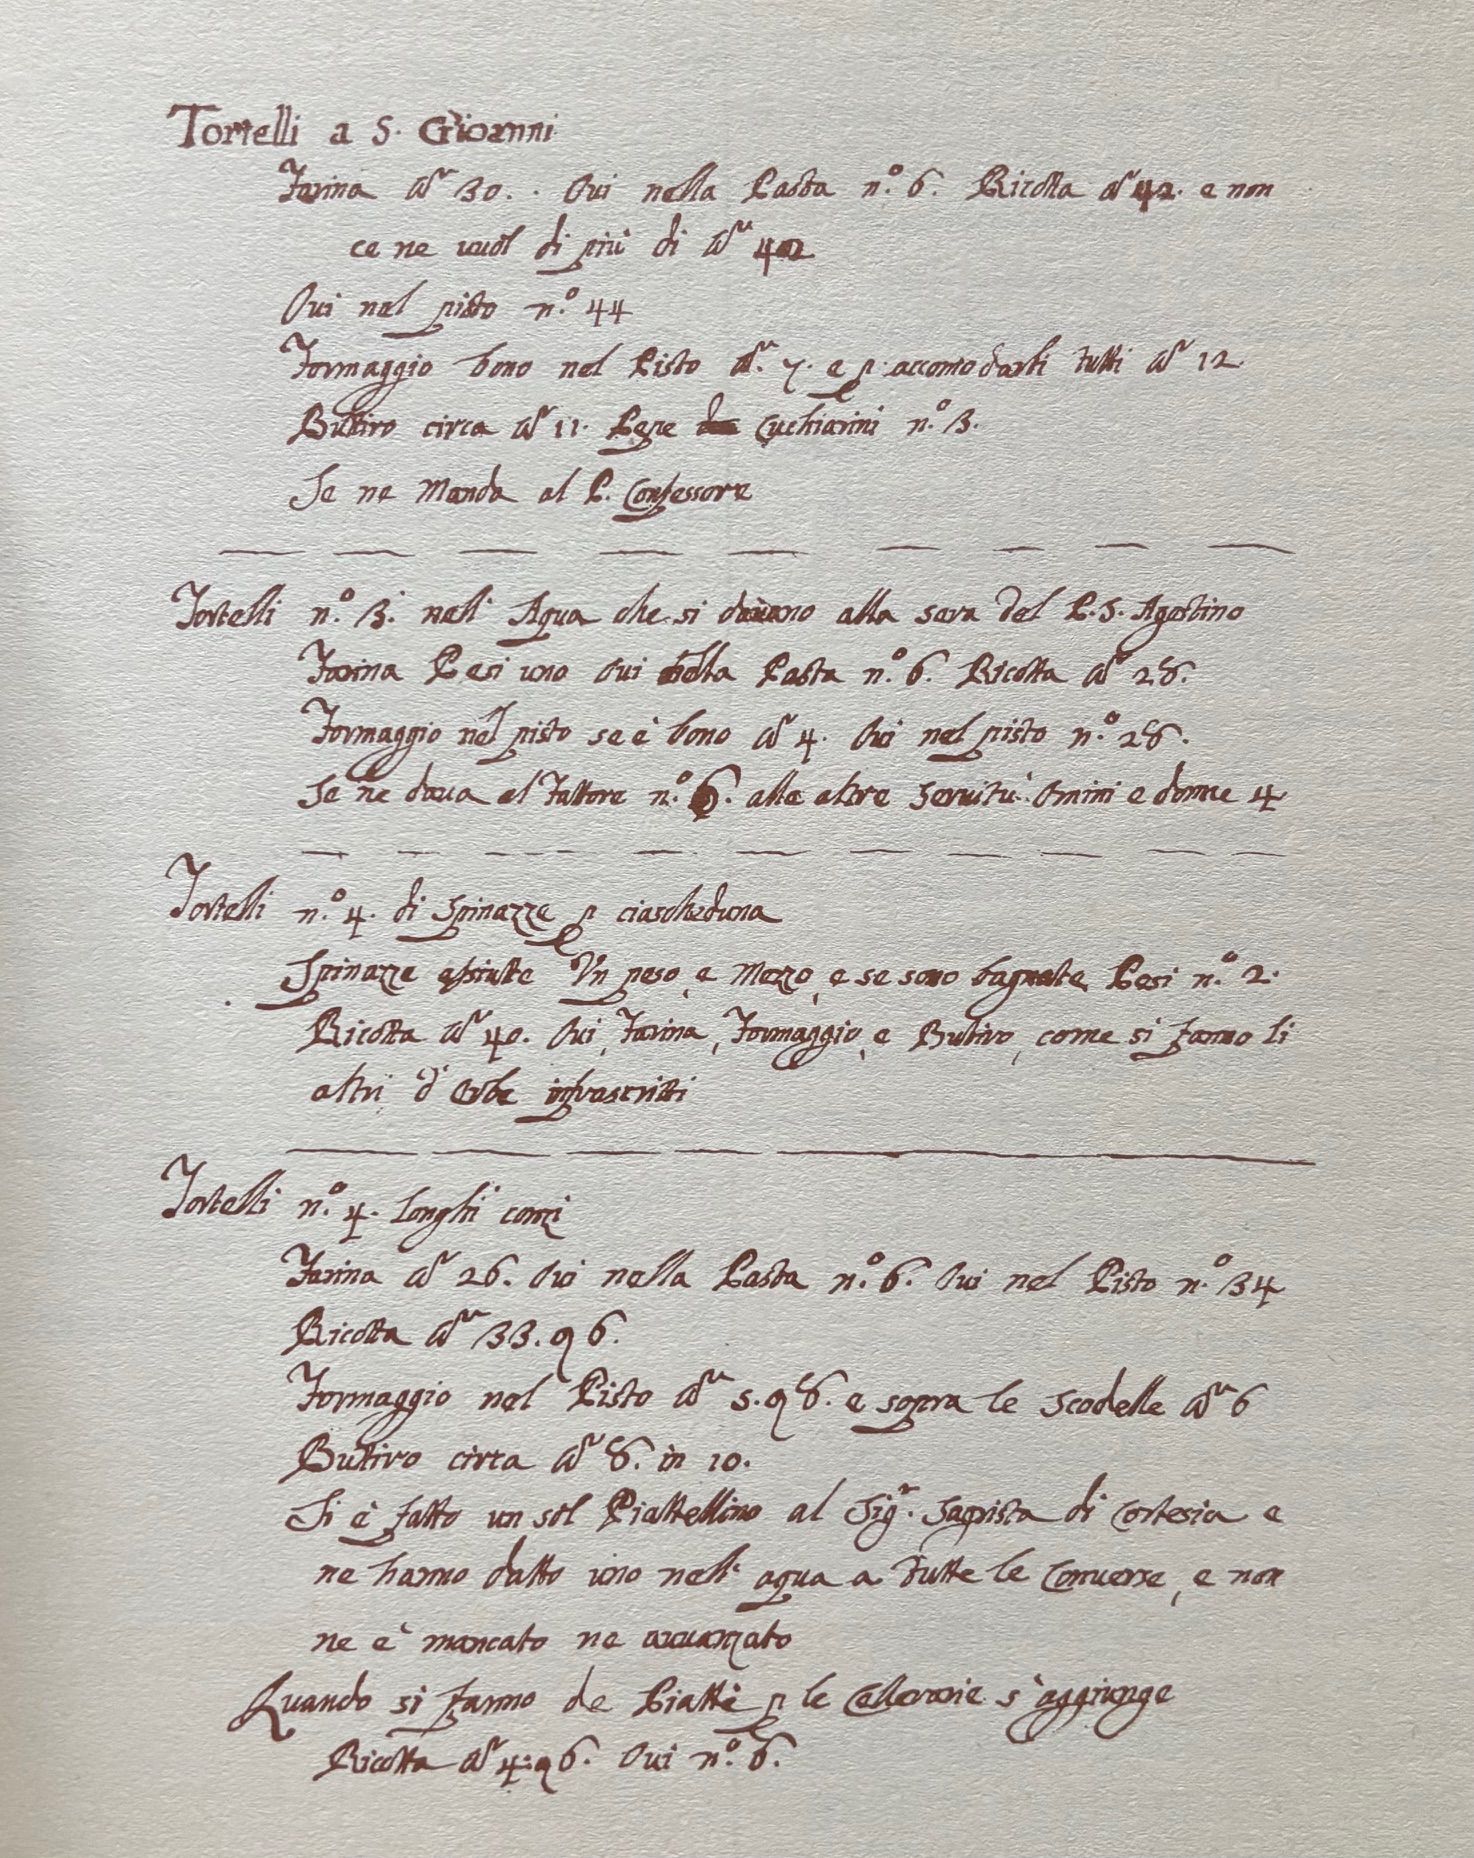 Tortelli a S. Giovanni
Farina lb. 30. Oui nella Pasta n.º 6. Ricotta lb. 42. e non
ce ne uuol di più di lb. 40
Oui nel pisto n.º 44
Formaggio bono nel Pisto lb. 7. e p accomodarli tutti lb. 12.
Buttiro circa lb. 11. Pepe Cuchiarini n.º 3.
Se ne Manda al P. Confessore
Tortelli n.º 3. nell' Aqua che si dauano alla sera del P. S. Agostino
Farina Pesi uno Oui nella Pasta n.º 6. Ricotta lb. 28.
Formaggio nel pisto se è bono lb. 4. Oui nel pisto n.º 28.
Se ne daua al Fattore n.º 6. alle altre Seruitù Omini e donne 4
Tortelli n.º 4. di Spinazze p ciascheduna
Spinazze assiutte Un peso, e Mezzo, e se sono bagnate Pesi n.º 2.
Ricotta lb. 40. Oui, Farina, Formaggio, e Butiro, come si fanno li
altri d' Erbe infrascritti
Tortelli n.º 4. longhi
Farina lb. 26. Oui nella Pasta n.º 6. Oui nel Pisto n.º 34
Ricotta lb. 33. 6.
Formaggio nel Pisto lb. 5. 8. e sopra le Scodelle lb. 6
Buttiro circa lb. 8. in 10.
Si è fatto un sol Piattellino al Sig.r Sagrista di Cortesia e
ne hanno datto uno nell' aqua a tutte le Conuerse, e non
ne è mancato ne auuanzato
Quando si fanno de Piatti p le s' aggionge
Ricotta lb. 4: 6. Oui n.º 6.